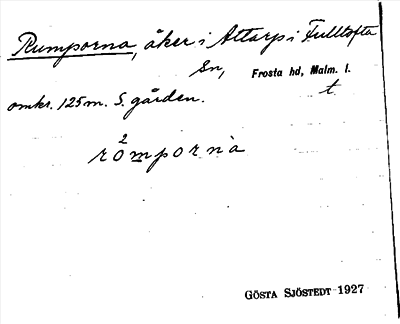 Rumporna, åker i Attarp i Fulltofta
Sn, Frosta hd, Malm. l.
t
omkr. 125 m. S. gården.
2
römporna
GÖSTA SJÖSTEDT 1927